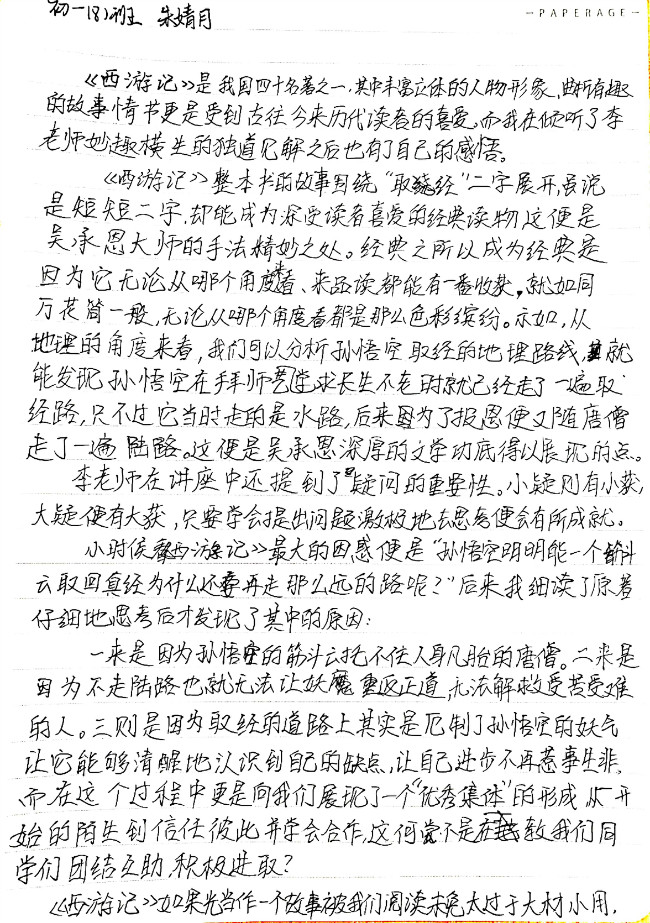 初一(8)班 朱婧月
PAPERAGE
《西游记》是我国四十名著之一,其中丰富立体的人物形象、曲折有趣
的故事情节更是受到古往今来历代读者的喜爱。而我在倾听了李
老师妙趣横生的独道见解之后也有了自己的感悟。
《西游记》整本书的故事围绕“取经”二字展开,虽说
是短短二字,却能成为深受读者喜爱的经典读物,这便是
吴承恩大师的手法精妙之处。经典之所以成为经典是
因为它无论从哪个角度来看、来品读都能有一番收获。就如同
万花筒一般,无论从哪个角度看都是那么色彩缤纷。示如,从
地理的角度来看,我们可以分析孙悟空取经的地理路线,就
能发现孙悟空在拜师学艺求长生不老时就已经走了一遍取
经路,只不过它当时走的是水路,后来因为了报恩便又随唐僧
走了一遍陆路。这便是吴承恩深厚的文学功底得以展现的点。
李老师在讲座中还提到了疑问的重要性。小疑则有小获,
大疑便有大获,只要学会提出问题激极地去思考便会有所成就。
小时候看《西游记》最大的困惑便是“孙悟空明明能一个筋斗
云取回真经为什么还要再走那么远的路呢?”后来我细读了原著
仔细地思考后才发现了其中的原因:
一来是因为孙悟空的筋斗云托不住人身凡胎的唐僧。二来是
因为不走陆路也就无法让妖魔重返正道,无法解救受苦受难
的人。三则是因为取经的道路上其实是厄制了孙悟空的妖气
让它能够清醒地认识到自己的缺点,让自己进步不再惹事生非。
而在这个过程中更是向我们展现了一个“优秀集体”的形成,从开
始的陌生到信任彼此并学会合作,这何尝不是在教我们同
学们团结互助,积极进取?
《西游记》如果光当作一个故事被我们阅读未免太过于大材小用,